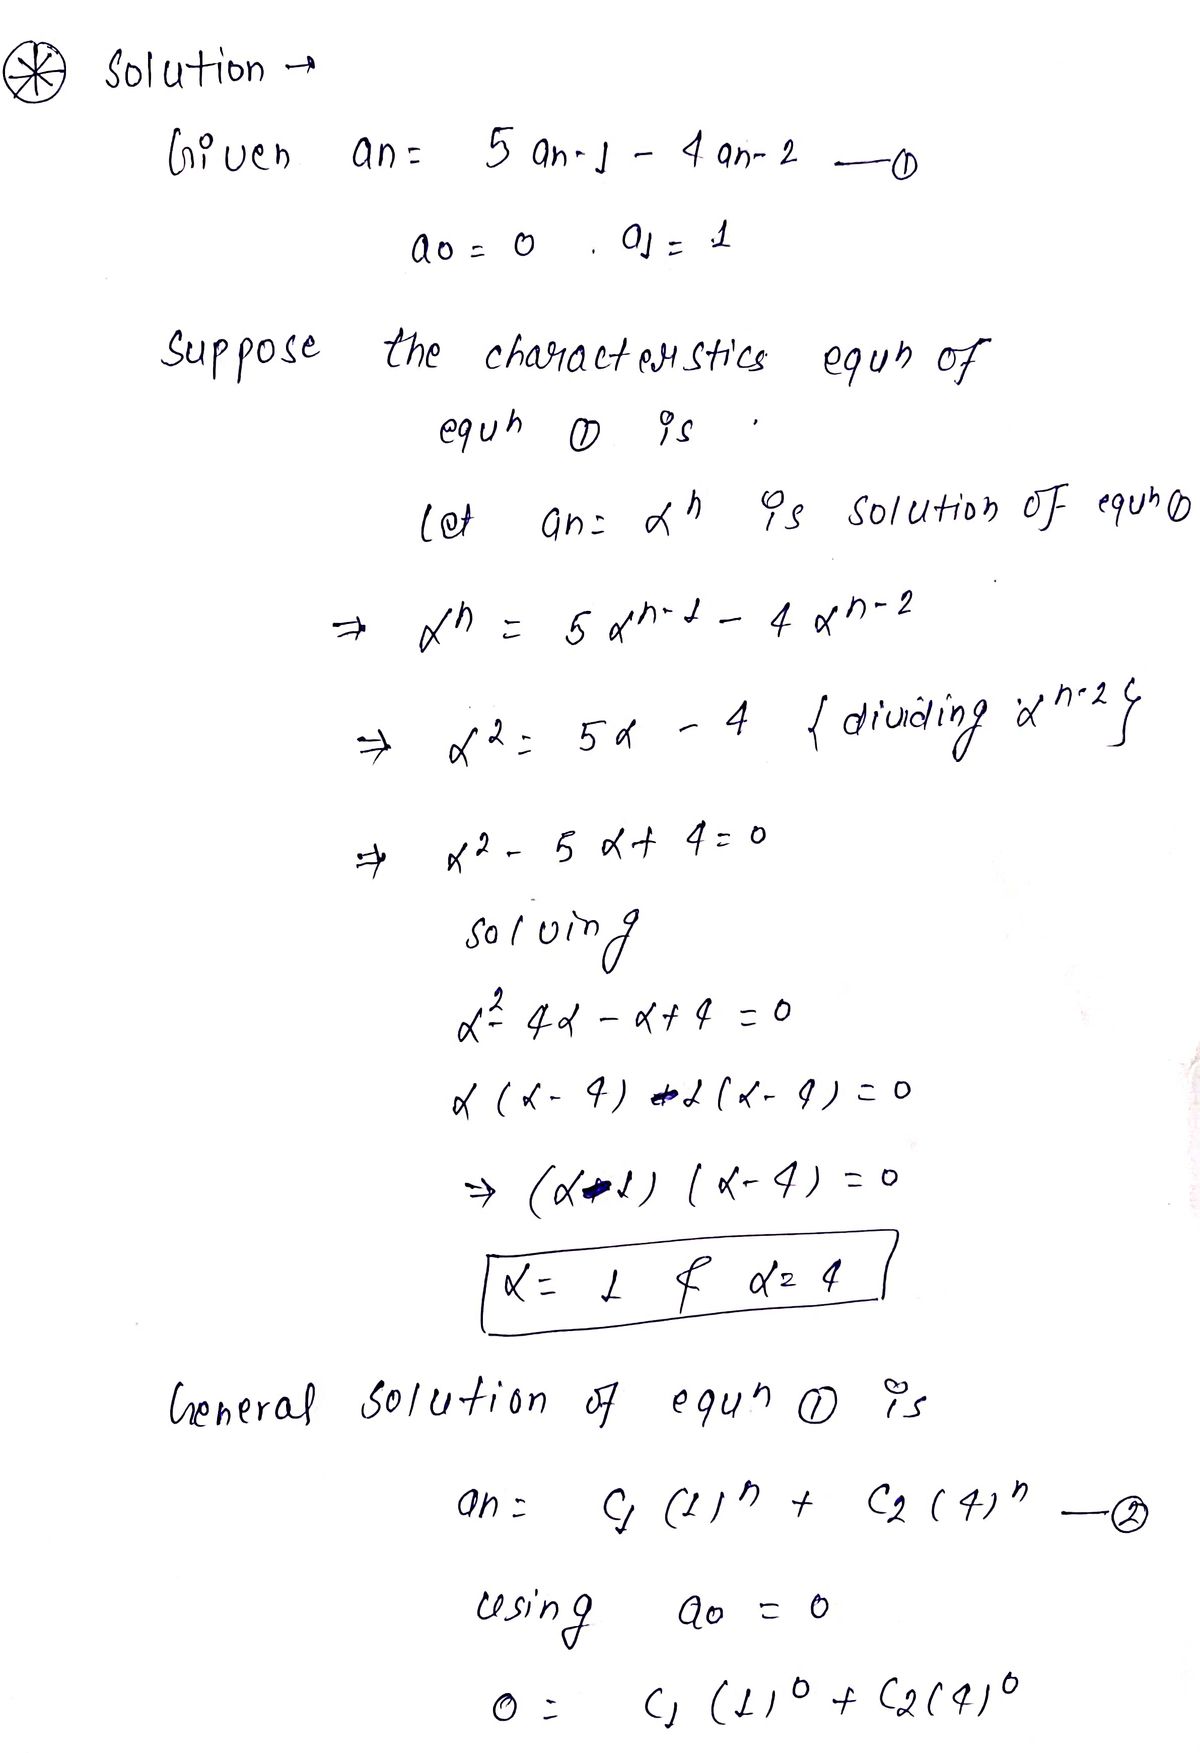 Solution →
Given an = 5 an-1 - 4 an-2 —①
a0 = 0 . a1 = 1
Suppose the characteristics equn of
equn ① is .
let an = αⁿ is solution of equn ①
⇒ αⁿ = 5 αⁿ⁻¹ - 4 αⁿ⁻²
⇒ α² = 5α - 4 {dividing αⁿ⁻²}
⇒ α² - 5α + 4 = 0
solving
α² - 4α - α + 4 = 0
α (α - 4) - 1 (α - 4) = 0
⇒ (α - 1) (α - 4) = 0
α = 1 & α = 4
General solution of equn ① is
an = C1 (1)ⁿ + C2 (4)ⁿ —②
using a0 = 0
0 = C1 (1)⁰ + C2 (4)⁰